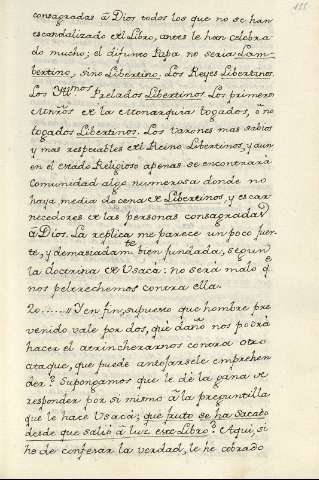 consagradas â Dios todos los que no se han
escandalizado del Libro, antes le han celebra
do mucho; el difunto Papa no seria Lam-
bertino, sino Libertino. Los Reyes Libertinos.
Los Yllmos Prelados Libertinos. Los primeros
Mnrõs de la Monarquia togados, ô no
togados Libertinos. Los varones mas sabios
y mas respetables del Reino Libertinos, y aun
en el estado Religioso apenas se encontrarà
comunidad algo numerosa donde no
haya media docena de Libertinos, y escar-
necedores de las personas consagradas
â Dios. La replica me parece un poco fuer-
te, y demasiadamte bien fundada, segun
la doctrina de Usaca: no serà malo q̃
nos pertrechemos contra ella.
20......// Y en fin, supuesto que hombre pre
venido vale por dos, que daño nos podrà
hacer el atrincherarnos contra otro
ataque, que puede antojarsele emprehen
der? Supongamos que le dè la gana de
responder por sì mismo â la preguntilla
que le hace Usaca; que fruto se ha sacado
desde que saliò â luz este Libro? Aqui, si
he de confesar la verdad, le he cobrado